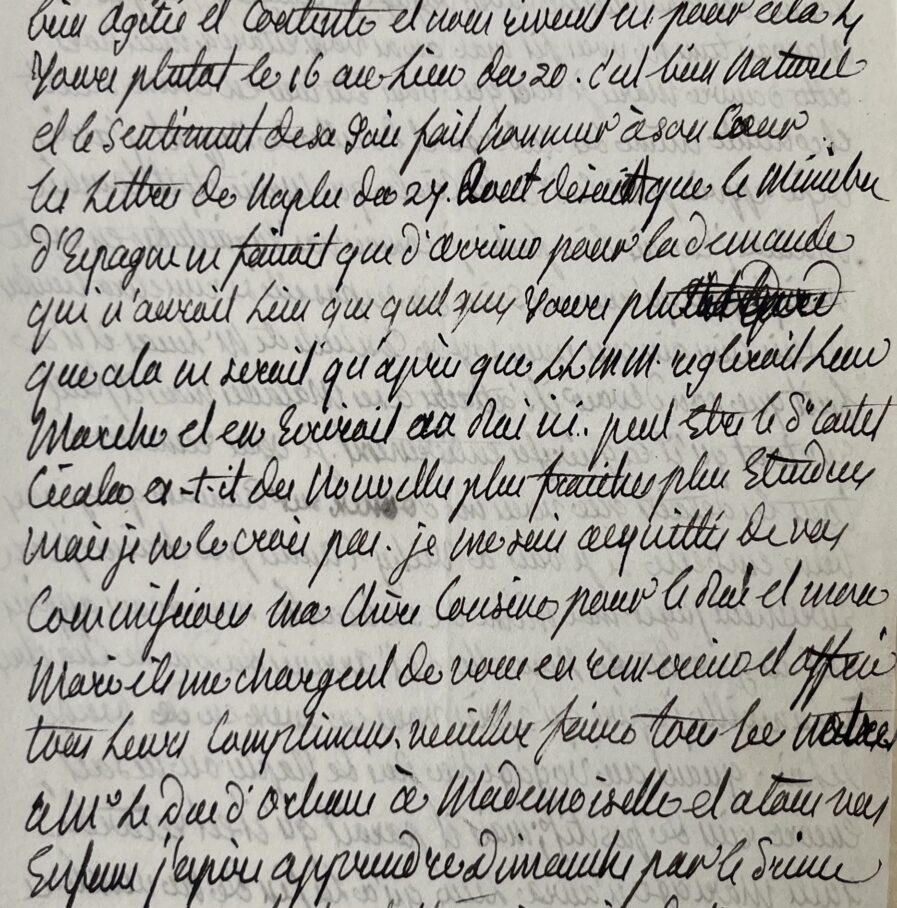 bien agitée et Contente et nous
Jours plutot le 16 au Lieu du 20. c'est bien Naturel
et le sentiment de sa Joie fait honneur à son Cœur.
les Lettres de Naples du 27. Aout disait que le Ministre
d'Espagne ne faisait que d'arriver pour la demande
qui n'aurait Lieu que quelques Jours plus
que cela ne serait qu'après que LL MM. reglerait Leur
Marche et en Ecrirait au Roi ici. peut Etre le
a-t-il des Nouvelles plus fraiches plus Etendues
mais je ne le crois pas. je me suis acquittée de vos
Commissions ma Chère Cousine pour le Roi et mon
Mari ils me chargent de vous en remercier et offrir
tous Leurs Complimens. veuillez faire tous les notres
à Mr Le Duc d'Orleans à Mademoiselle et a tous vos
Enfans j'espère apprendre Dimanche par le Prince